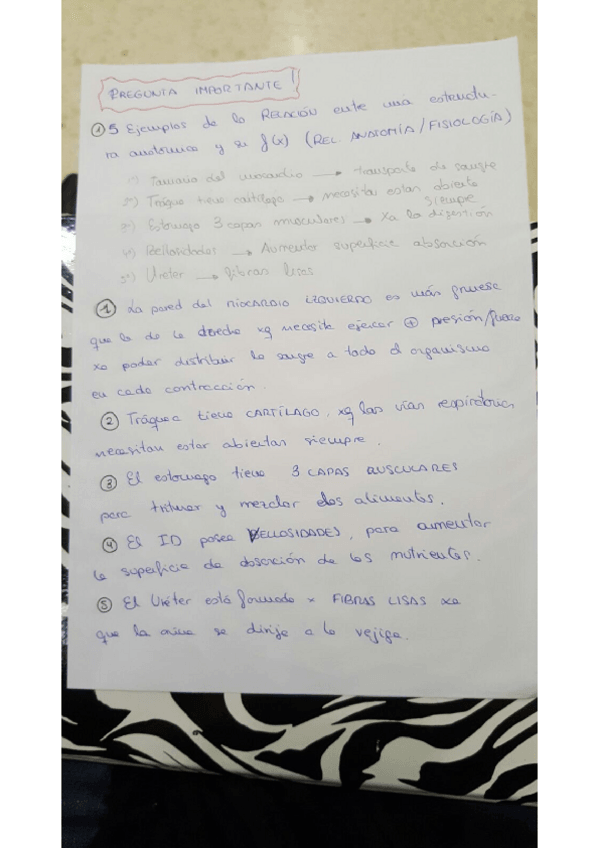 PREGUNTA IMPORTANTE!
① 5 Ejemplos de la RELACIÓN entre una estructu-
ra anatómica y su f(x) (REL. ANATOMÍA / FISIOLOGÍA)
1º) Tamaño del miocardio → transporte de sangre
2º) Tráquea tiene cartílago → necesita estar abierta siempre
3º) Estomago 3 capas musculares → Xa la digestión
4º) Bellosidades → Aumentar superficie absorción
5º) Uréter → fibras lisas
① La pared del MIOCARDIO IZQUIERDO es más gruesa
que la de la derecha xq necesita ejercer ⊕ presión/fuerza
xa poder distribuir la sangre a todo el organismo
en cada contracción.
② Tráquea tiene CARTÍLAGO, xq las vías respiratorias
necesitan estar abiertas siempre.
③ El estomago tiene 3 CAPAS MUSCULARES
para triturar y mezclar los alimentos.
④ El ID posee VELLOSIDADES, para aumentar
la superficie de absorción de los nutrientes.
⑤ El Uréter está formado x FIBRAS LISAS xa
que la orina se dirije a la vejiga.